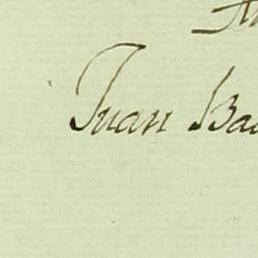 Juan Ba